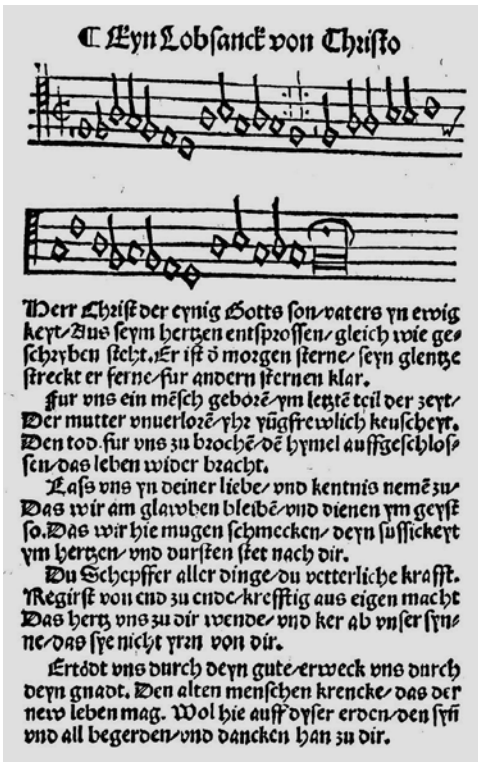 ¶ Eyn Lobsanck von Christo
Herr Christ der eynig Gotts son/vaters yn ewig
keyt/Aus seym hertzen entsprossen/gleich wie ge⸗
schryben steht.Er ist ð morgen sterne/seyn glentze
streckt er ferne/fur andern sternen klar.
Fur vns ein mẽsch geborẽ/ym letztẽ teil der zeyt/
Der mutter vnuerlorẽ/yhr yũgfrewlich keuscheyt.
Den tod fur vns zu brochẽ/dẽ hymel auffgeschlos⸗
sen/das leben wider bracht.
Lass vns yn deiner liebe/vnd kentnis nemẽ zu/
Das wir am glawben bleibẽ/vnd dienen ym geyst
so.Das wir hie mugen schmecken/deyn sussickeyt
ym hertzen/vnd dursten stet nach dir.
Du Schepffer aller dinge/du vetterliche krafft.
Regirst von end zu ende/krefftig aus eigen macht
Das hertz vns zu dir wende/vnd ker ab vnser syn⸗
ne/das sye nicht yrrn von dir.
Ertödt vns durch deyn gute/erweck vns durch
deyn gnadt. Den alten menschen krencke/das der
new leben mag. Wol hie auff dyser erden/den syñ
vnd all begerden/vnd dancken han zu dir.